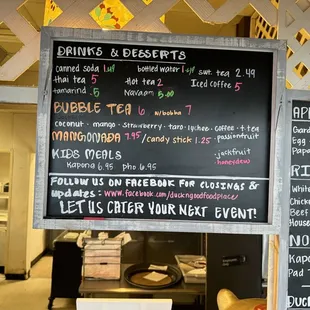 DRINKS & DESSERTS
canned soda bottled water swt. tea 2.49
thai tea 5 Hot tea 2 Iced Coffee 5
tamarind 5 Navaan 5.00
BUBBLE TEA 6 w/boba 7
coconut - mango - strawberry - taro - lychee - coffee - t.tea
MANGONADA 7.95/candy stick 1.25 - passionfruit
- jackfruit
KIDS MEALS - honeydew
Kapona 6.95 pho 6.95
FOLLOW US ON FACEBOOK FOR CLOSINGS &
updates: www.facebook.com/duckngoodfoodplace/
LET US CATER YOUR NEXT EVENT!
AP
Gard
Egg
Pape
RI
White
Chick
Beef
House
NO
Kapo
Pad T
Duck